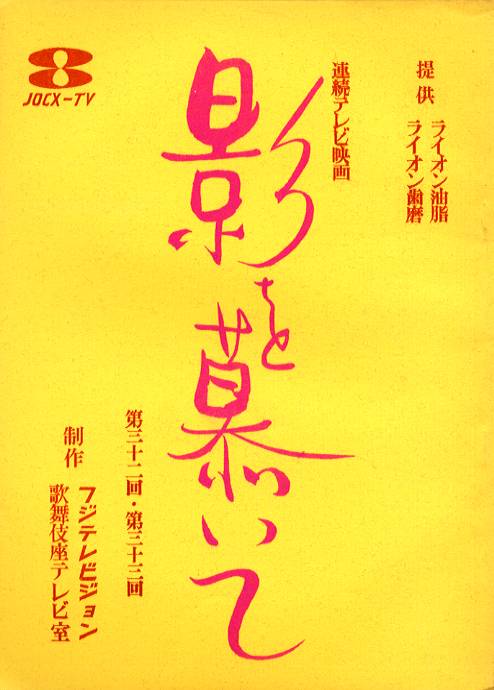 提供
ライオン油脂
ライオン歯磨
連続テレビ映画
影を慕いて
第三十二回・第三十三回
制作
フジテレビジョン
歌舞伎座テレビ室
JOCX-TV